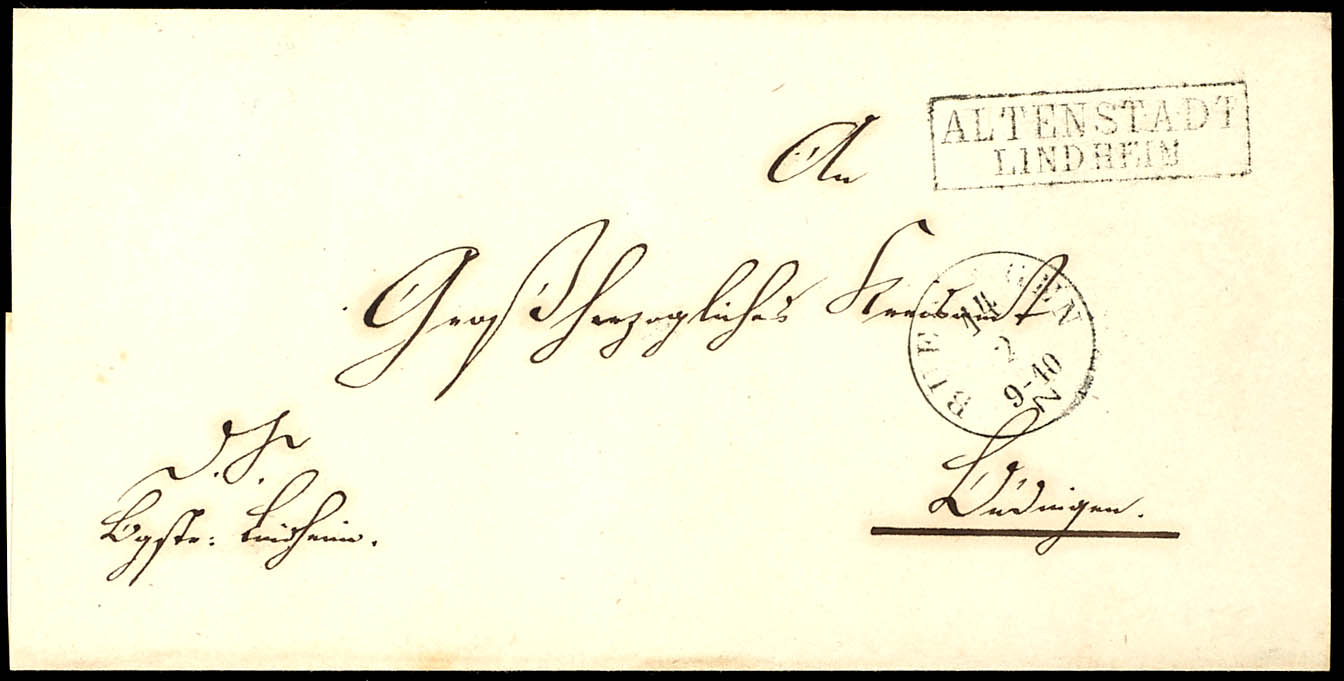 ALTENSTADT
LINDHEIM
An
Großherzogliches Kreisamt
BUEDINGEN
14
2
9-10
N
Büdingen.
d. S.
Bgstr: Lindheim.